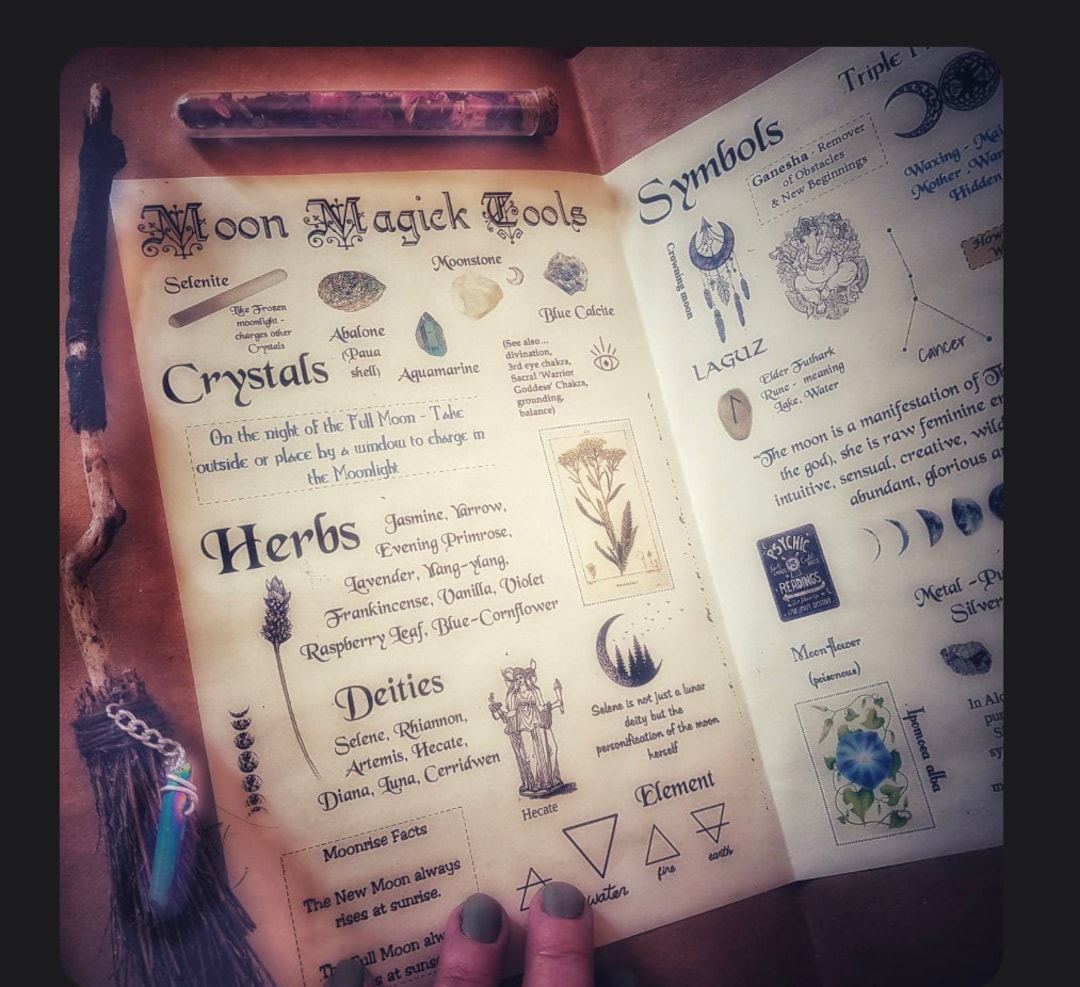 Moon Magick Tools
Selenite
Like Frozen
moonlight -
charges other
Crystals
Abalone
(Paua
shell)
Moonstone
Aquamarine
Blue Calcite
(See also...
divination,
3rd eye chakra,
Sacral 'Warrior
Goddess' Chakra,
grounding,
balance)
Crystals
On the night of the Full Moon - Take
outside or place by a window to charge in
the Moonlight
Herbs
Jasmine, Yarrow,
Evening Primrose,
Lavender, Ylang-ylang,
Frankincense, Vanilla, Violet
Raspberry Leaf, Blue-Cornflower
Deities
Selene, Rhiannon,
Artemis, Hecate,
Diana, Luna, Cerridwen
Hecate
Selene is not just a lunar
deity but the
personification of the moon
herself
Element
water
fire
earth
Moonrise Facts
The New Moon always
rises at sunrise.
Full Moon
at
Symbols
Triple
Ganesha - Remover
of Obstacles
& New Beginnings
Waxing -
Mother -
Hidden
Crowning moon
Cancer
LAGUZ
Elder Futhark
Rune - meaning
Lake, Water
"The moon is a manifestation of
the god), she is raw feminine
intuitive, sensual, creative, wild
abundant, glorious
PSYCHIC
READINGS
Metal -
Silver
Moonflower
(poisonous)
Ipomoea alba
In